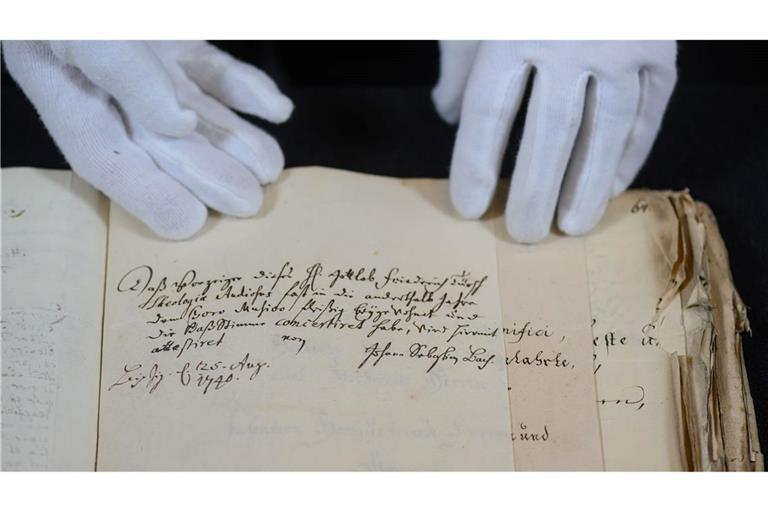 Daß Vorzeiger dieses H. Gottlob Friedrich Türck
Theologiæ Studiosus fast in die anderthalb Jahre
dem Choro Musico fleißig beygewohnet und
die Baß Stimme concertiret habe, wird hiermit
attestiret von
Johann Sebastian Bach.
Leipzig. d 25. Aug.
1740.
nifici,
und